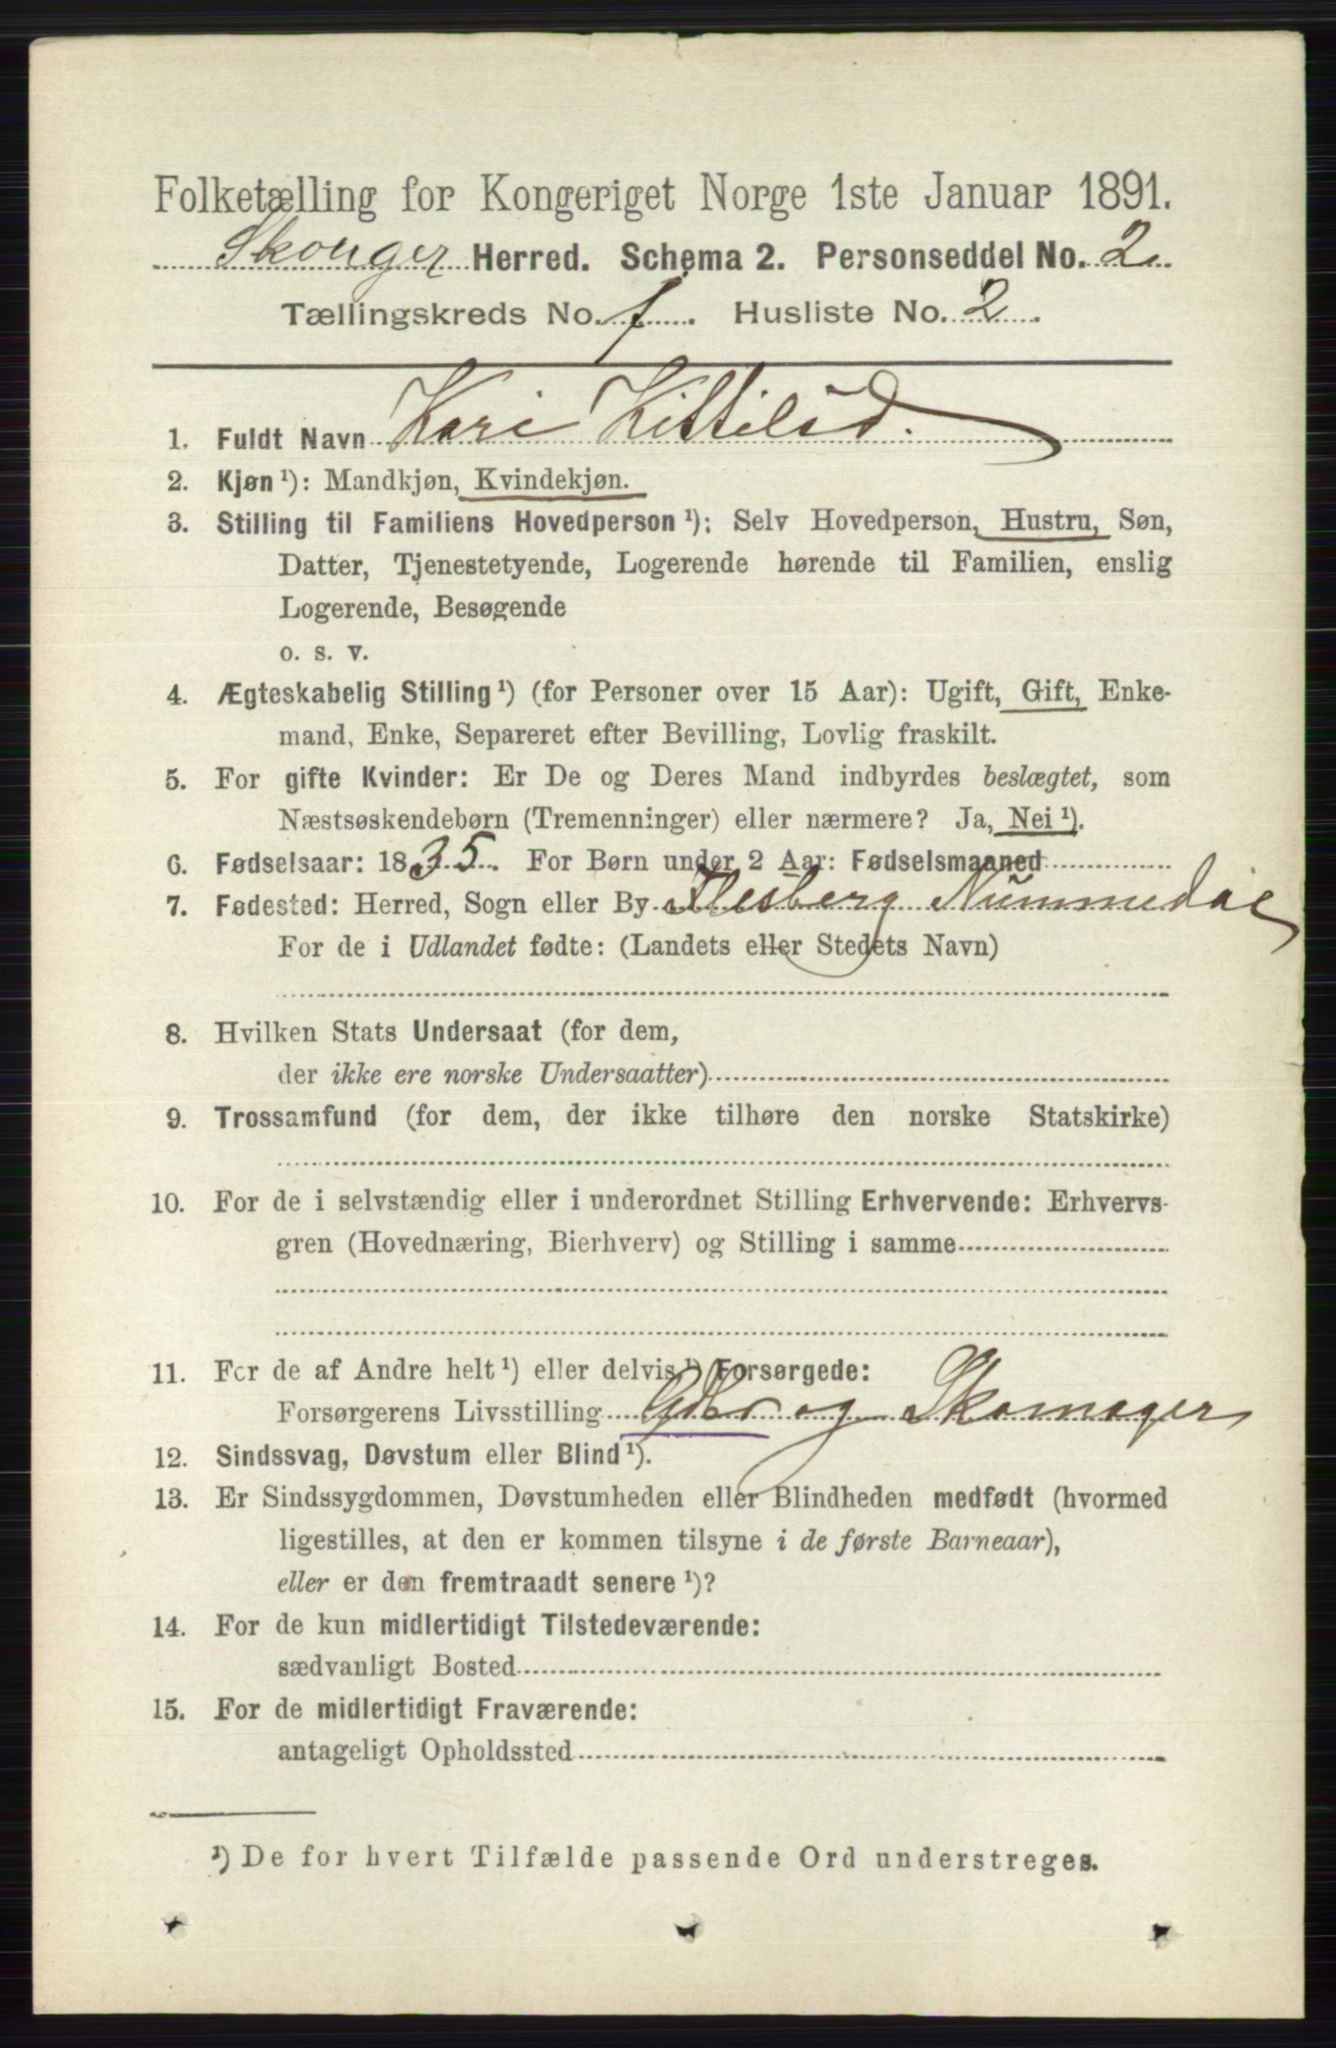 Folketælling for Kongeriget Norge 1ste Januar 1891.
Skouger Herred. Schema 2. Personseddel No. 2
Tællingskreds No. 1. Husliste No. 2.
Kari Kittilsd.
1. Fuldt Navn
2. Kjøn ¹): Mandkjøn, Kvindekjøn.
3. Stilling til Familiens Hovedperson ¹): Selv Hovedperson, Hustru, Søn,
Datter, Tjenestetyende, Logerende hørende til Familien, enslig
Logerende, Besøgende
o. s. v.
4. Ægteskabelig Stilling ¹) (for Personer over 15 Aar): Ugift, Gift, Enke-
mand, Enke, Separeret efter Bevilling, Lovlig fraskilt.
5. For gifte Kvinder: Er De og Deres Mand indbyrdes beslægtet, som
Næstsøskendebørn (Tremenninger) eller nærmere? Ja, Nei ¹).
6. Fødselsaar: 1835. For Børn under 2 Aar: Fødselsmaaned
7. Fødested: Herred, Sogn eller By Flesberg Nummedal
For de i Udlandet fødte: (Landets eller Stedets Navn)
8. Hvilken Stats Undersaat (for dem,
der ikke ere norske Undersaatter)
9. Trossamfund (for dem, der ikke tilhøre den norske Statskirke)
10. For de i selvstændig eller i underordnet Stilling Erhvervende: Erhvervs-
gren (Hovednæring, Bierhverv) og Stilling i samme
11. For de af Andre helt ¹) eller delvis ¹) Forsørgede:
Forsørgerens Livsstilling Gdbr og Skomager
12. Sindssvag, Døvstum eller Blind ¹).
13. Er Sindssygdommen, Døvstumheden eller Blindheden medfødt (hvormed
ligestilles, at den er kommen tilsyne i de første Barneaar),
eller er den fremtraadt senere ¹)?
14. For de kun midlertidigt Tilstedeværende:
sædvanligt Bosted
15. For de midlertidigt Fraværende:
antageligt Opholdssted
¹) De for hvert Tilfælde passende Ord understreges.